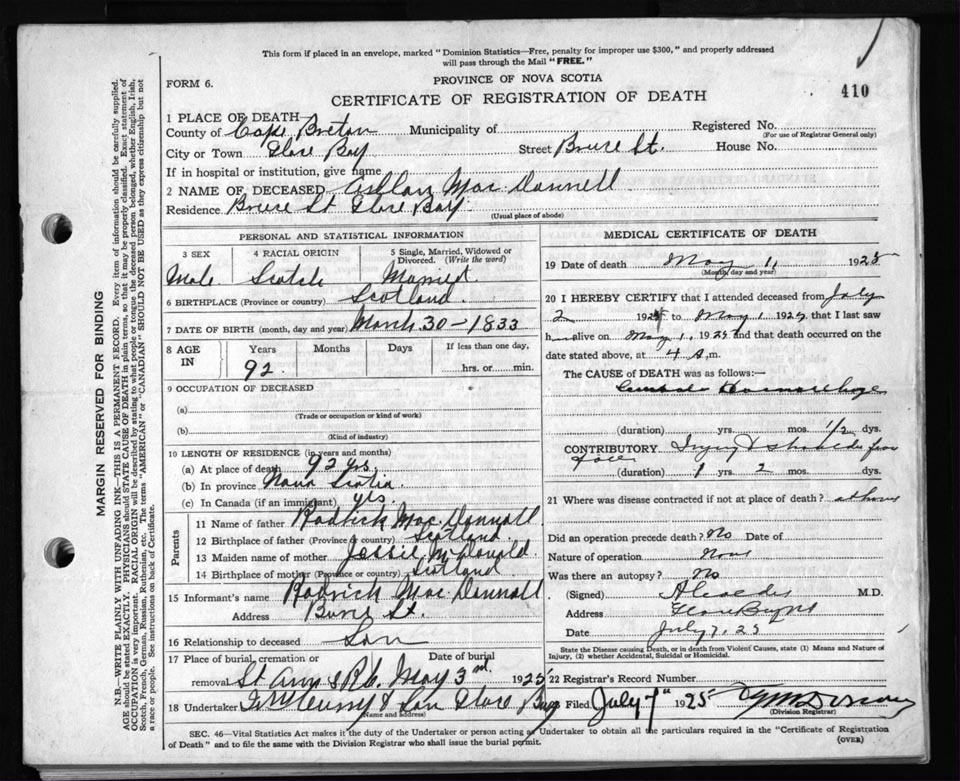 This form if placed in an envelope, marked "Dominion Statistics—Free, penalty for improper use $300," and properly addressed
will pass through the Mail "FREE."
FORM 6.
PROVINCE OF NOVA SCOTIA
CERTIFICATE OF REGISTRATION OF DEATH
410
1 PLACE OF DEATH—
County of Cape Breton Municipality of
Registered No.
(For use of Registrar General only)
City or Town Glace Bay Street Bruce St. House No.
If in hospital or institution, give name
2 NAME OF DECEASED Mac Donnell
Residence Bruce St Glace Bay
(Usual place of abode)
PERSONAL AND STATISTICAL INFORMATION
3 SEX
4 RACIAL ORIGIN
5 Single, Married, Widowed or
Divorced. (Write the word)
Male Scotch Married
6 BIRTHPLACE (Province or country) Scotland
7 DATE OF BIRTH (month, day and year) March 30-1833
8 AGE IN
Years Months Days If less than one day,
92 hrs. or min.
9 OCCUPATION OF DECEASED
(a)
(Trade or occupation or kind of work)
(b)
(Kind of industry)
10 LENGTH OF RESIDENCE (in years and months)
(a) At place of death 92 yrs
(b) In province Nova Scotia
(c) In Canada (if an immigrant) yrs.
Parents
11 Name of father Rodrick Mac Donnell
12 Birthplace of father (Province or country) Scotland
13 Maiden name of mother Jessie McDonald
14 Birthplace of mother (Province or country) Scotland
15 Informant's name Rodrick Mac Donnell
Address Bruce St.
16 Relationship to deceased Son
17 Place of burial, cremation or
removal
Date of burial
St Anns May 3rd 1925
18 Undertaker & Son Glace Bay
(Name and address)
MEDICAL CERTIFICATE OF DEATH
19 Date of death May 1, 1925
(Month, day and year)
20 I HEREBY CERTIFY that I attended deceased from July
2 192 to May 1 192 that I last saw
him alive on May 1, 192 and that death occurred on
date stated above, at 4 A.m.
The CAUSE OF DEATH was as follows:—
Haemorrhage
(duration) yrs. mos. 1/2 dys.
CONTRIBUTORY Injury shoulder from
(duration) 1 yrs. 2 mos. dys.
21 Where was disease contracted if not at place of death? at home
Did an operation precede death? No Date of
Nature of operation None
Was there an autopsy? No
(Signed) M.D.
Address Glace Bay NS
Date July 7, 25
State the Disease causing Death, or in death from Violent Causes, state (1) Means and Nature of
Injury, (2) whether Accidental, Suicidal or Homicidal.
22 Registrar's Record Number
Filed July 7th 1925
(Division Registrar)
SEC. 46—Vital Statistics Act makes it the duty of the Undertaker or person acting as Undertaker to obtain all the particulars required in the "Certificate of Registration
of Death" and to file the same with the Division Registrar who shall issue the burial permit.
(OVER)
MARGIN RESERVED FOR BINDING
N.B.—WRITE PLAINLY WITH UNFADING INK—THIS IS A PERMANENT RECORD. Every item of information should be carefully supplied.
AGE should be stated EXACTLY. PHYSICIANS should STATE CAUSE OF DEATH in plain terms, so that it may be properly classified. Exact statement of
OCCUPATION is very important. RACIAL ORIGIN will be described by stating to what people or tongue the deceased person belonged, whether English, Irish,
Scotch, French, German, Russian, Ruthenian, etc. The terms "AMERICAN" or "CANADIAN" SHOULD NOT BE USED as they express citizenship but not
a race or people. See instructions on back of Certificate.